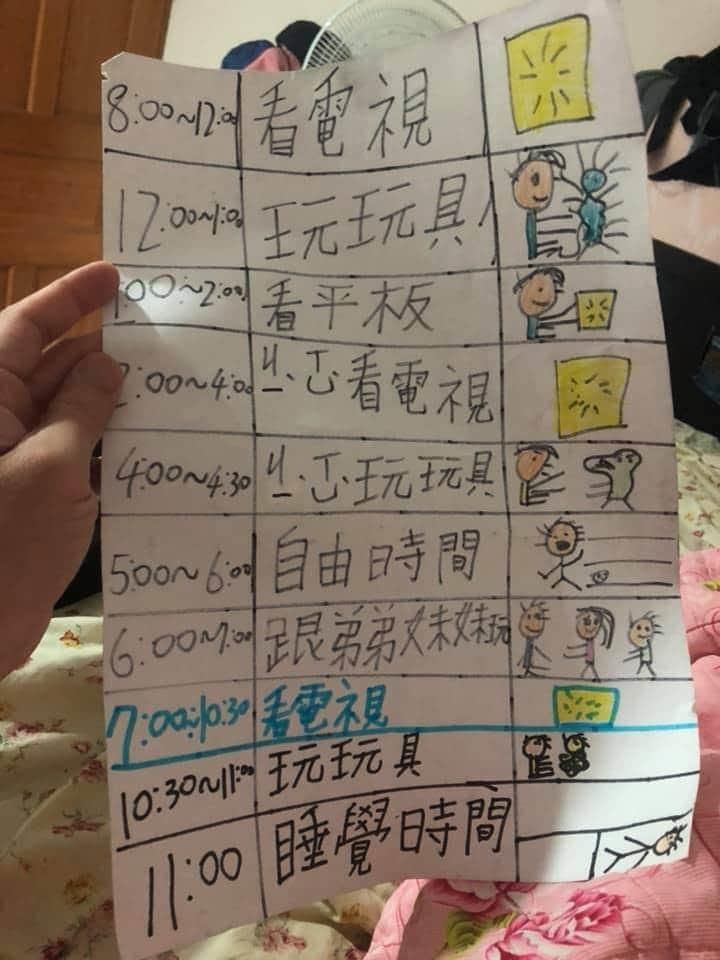 8:00~12:00 看電視
12:00~1:00 玩玩具
1:00~2:00 看平板
2:00~4:00 ㄐㄧˋㄒㄩˋ看電視
4:00~4:30 ㄐㄧˋㄒㄩˋ玩玩具
5:00~6:00 自由時間
6:00~7:00 跟弟弟妹妹玩
7:00~10:30 看電視
10:30~11:00 玩玩具
11:00 睡覺時間